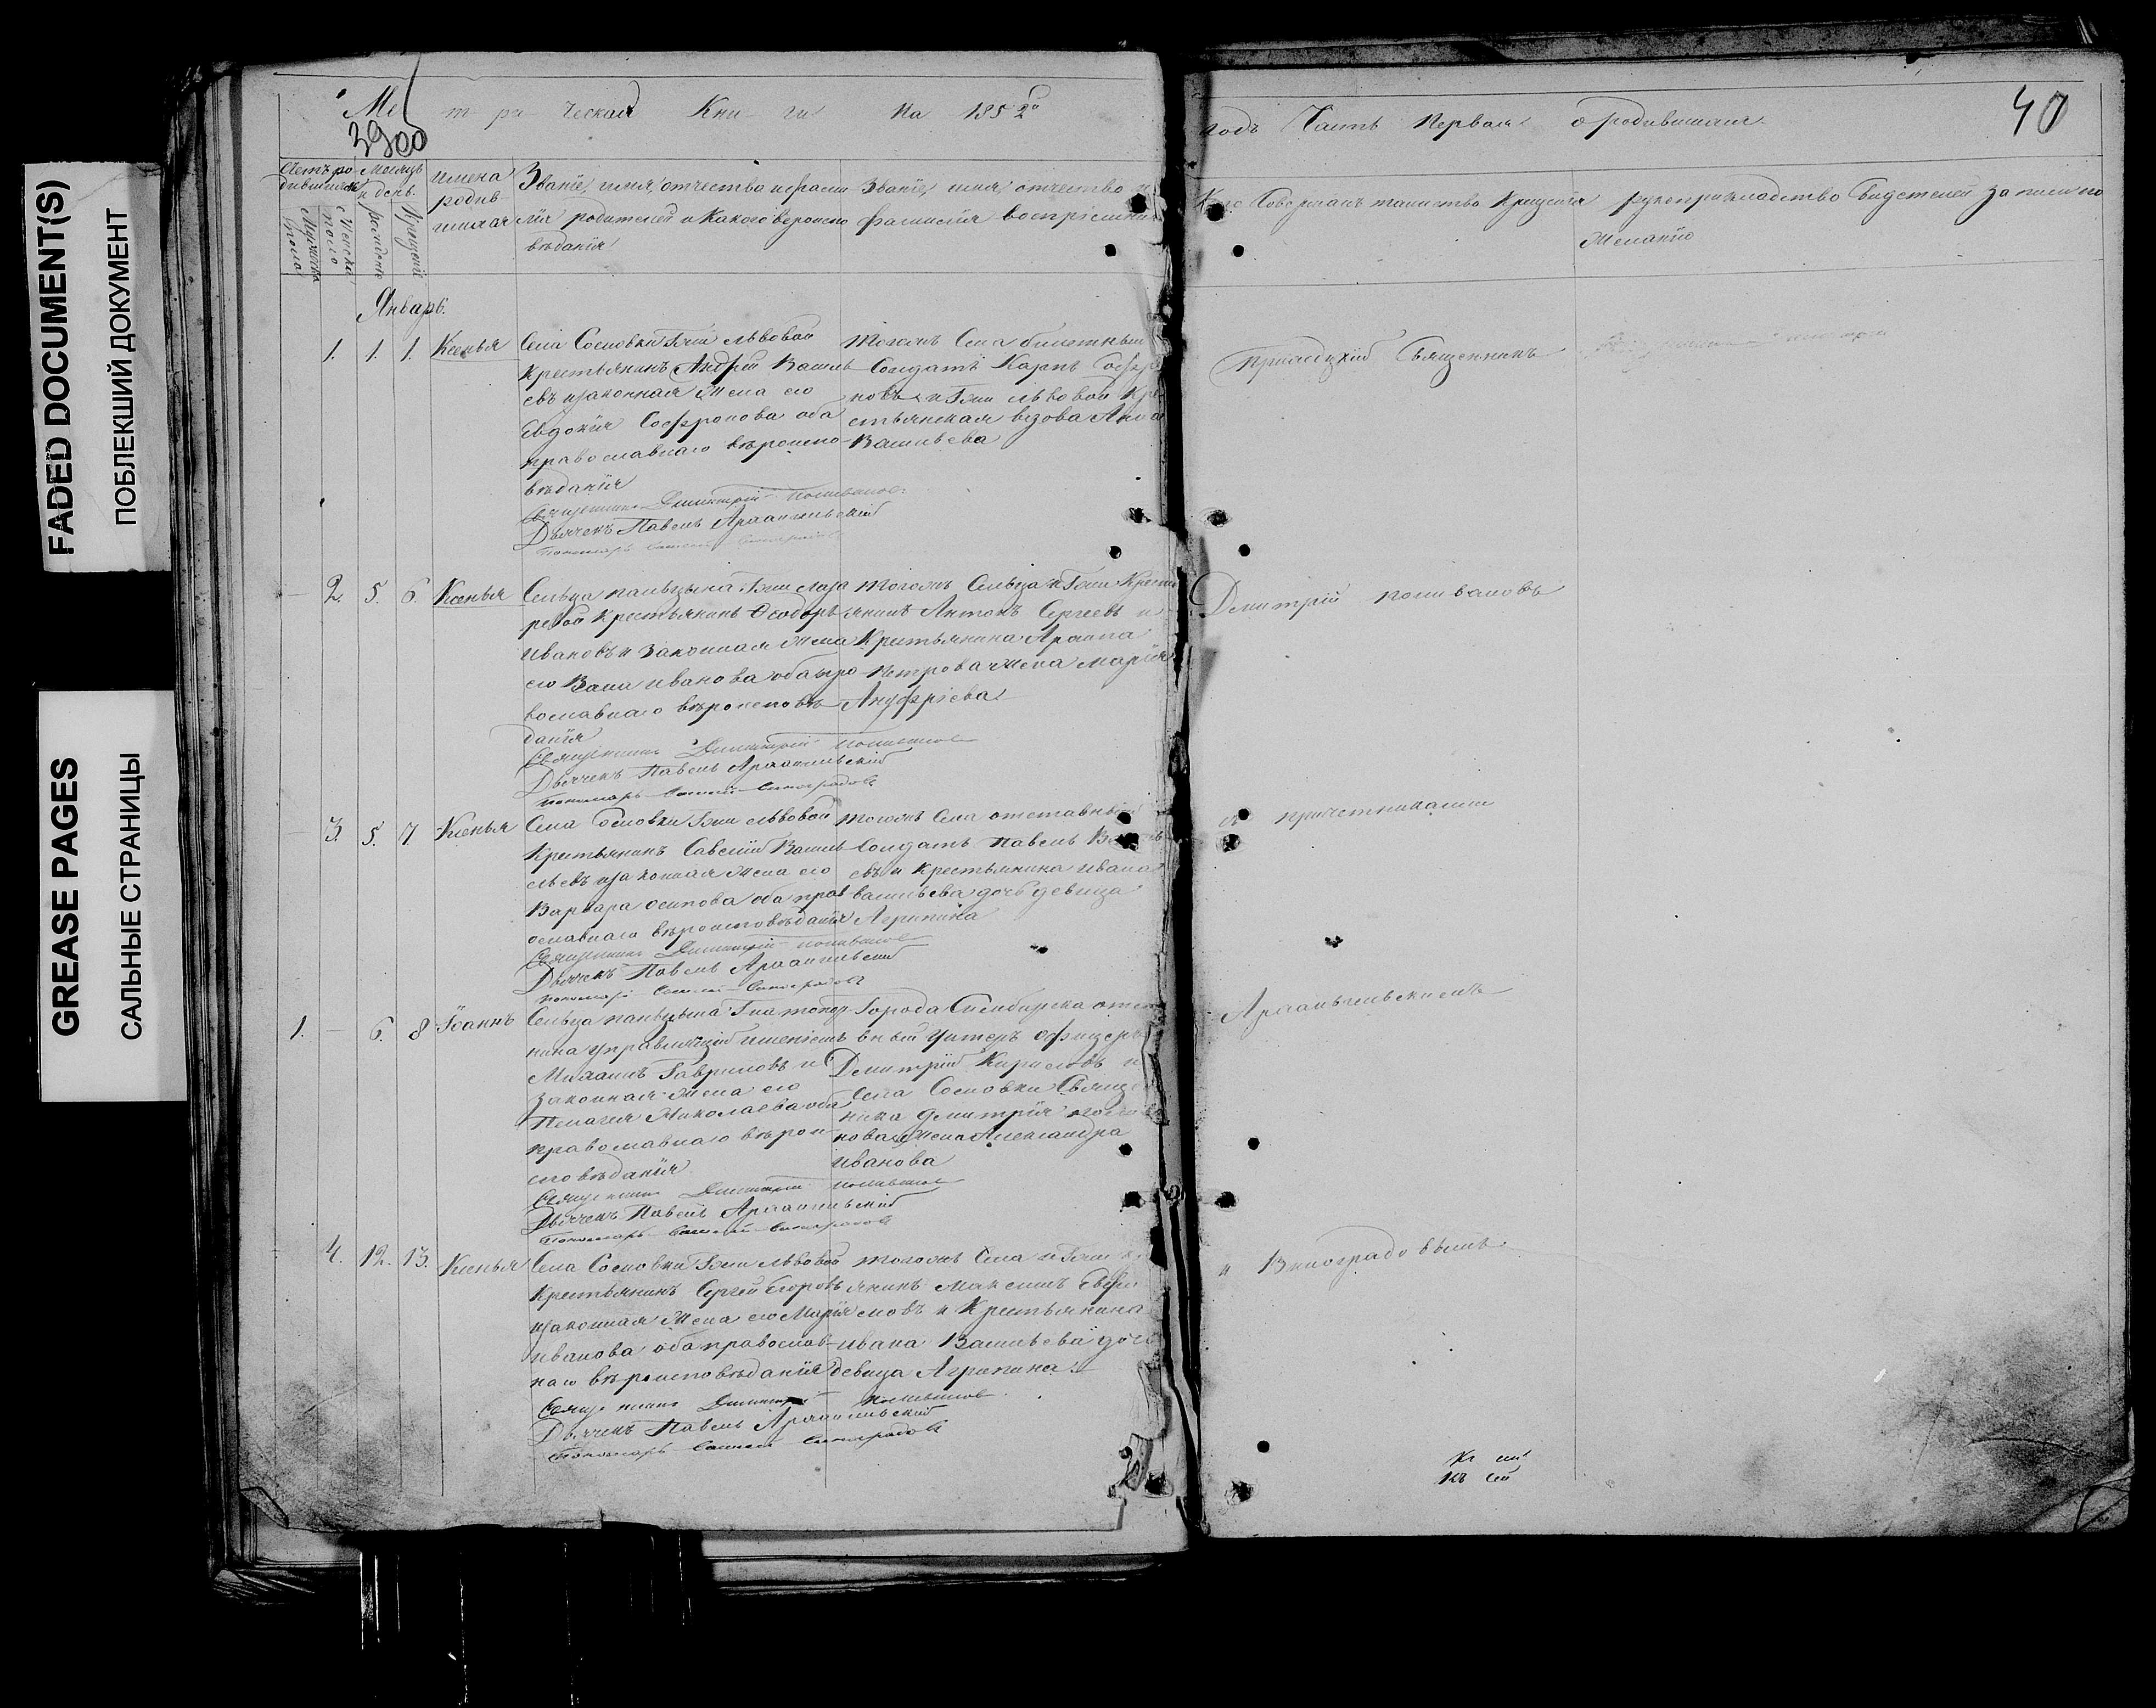 FADED DOCUMENT(S)
ПОБЛЕКШИЙ ДОКУМЕНТ
GREASE PAGES
САЛЬНЫЕ СТРАНИЦЫ
Метрическая Книги На 1852го
годъ Часть Первая о родившихся
40
Счетъ родившихся
Мужеска пола
Женска пола
Месяцъ и день
рожденіе
Крещеніе
имена родившихся
Званіе, имя, отчество и фамилія родителей и Какого вероисповѣданія
Званіе, имя, отчество и фамилія воспріемниковъ
Кто Совершалъ таинство Крещенія
рукоприкладство Свидетелей записи по Желанію
Январь.
1. 1. 1. Ксенья
Села Сосновки Гжи львовой
крестьянинъ Андрей Василь
евъ изаконная Жена его
Евдокия Софронова оба
православнаго вероиспо-
вѣданія
Священникъ Димитрій Поливановъ
Дьячекъ Павелъ Архангельскій
тогожъ Села билетный
Солдатъ Карпъ Софро
новъ и Гжи львовой Кре
стьянская вдова Анна
Васильева
Приходскій Священникъ
2. 5. 6. Ксенья
ревой Крестьянинъ Ѳеодоръ
Ивановъ и Законная Жена
его Васа Иванова оба пра
вославнаго вѣроисповѣ
данія
Священникъ Димитрій Поливановъ
Дьячекъ Павелъ Архангельскій
тогожъ Сельца и Гжи Кресть
янинъ Антонъ Сергеевъ и
Крестьянина
Петрова Жена Марія
Ануфріева
Дмитрій Поливановъ
3. 5. 7 Ксенья
Села Сосновки Гжи львовой
Крестьянинъ Савелій Василь
евъ изаконная Жена его
Варвара Осипова оба прав
ославнаго вѣроисповѣданія
Священникъ Димитрій Поливановъ
Дьячекъ Павелъ Архангельскій
тогожъ Села отставный
Солдатъ Павелъ
евъ и Крестьянина Ивана
Васильева дочь девица
Агрипина
съ причетниками
1. 6. 8 Іоаннъ
нина управляющій имѣніемъ
Михаилъ Гавриловъ и
Законная Жена его
Пелагея Николаева оба
православнаго вѣрои
сповѣданія
Священникъ Димитрій Поливановъ
Дьячекъ Павелъ Архангельскій
Города Симбирска отста
вный Унтеръ Офицеръ
Дмитрій Кириловъ и
Села Сосновки Священ
ника Дмитрія Полива
нова Жена Александра
Иванова
Архангельскимъ
4. 12. 13. Ксенья
Села Сосновки Гжи львовой
Крестьянинъ Сергей Егоровъ
изаконная Жена его Марія
Иванова оба православ-
наго вѣроисповѣданія
Священникъ Димитрій Поливановъ
Дьячекъ Павелъ Архангельскій
тогожъ Села и Гжи
янинъ Максимъ
мовъ и Крестьянина
Ивана Васильева дочь
девица Агрипина
и Виноградовымъ